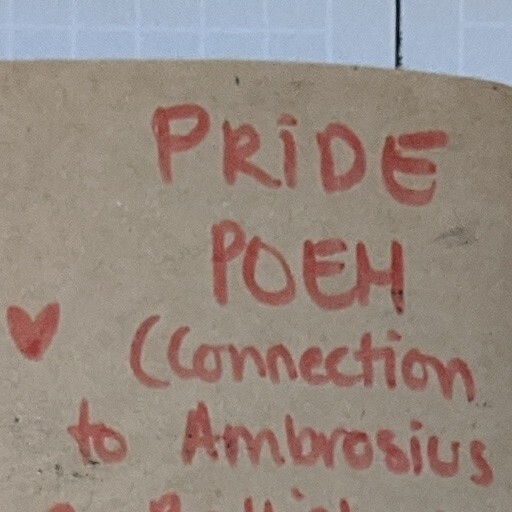 PRiDE
POEM
(Connection
to Ambrosius